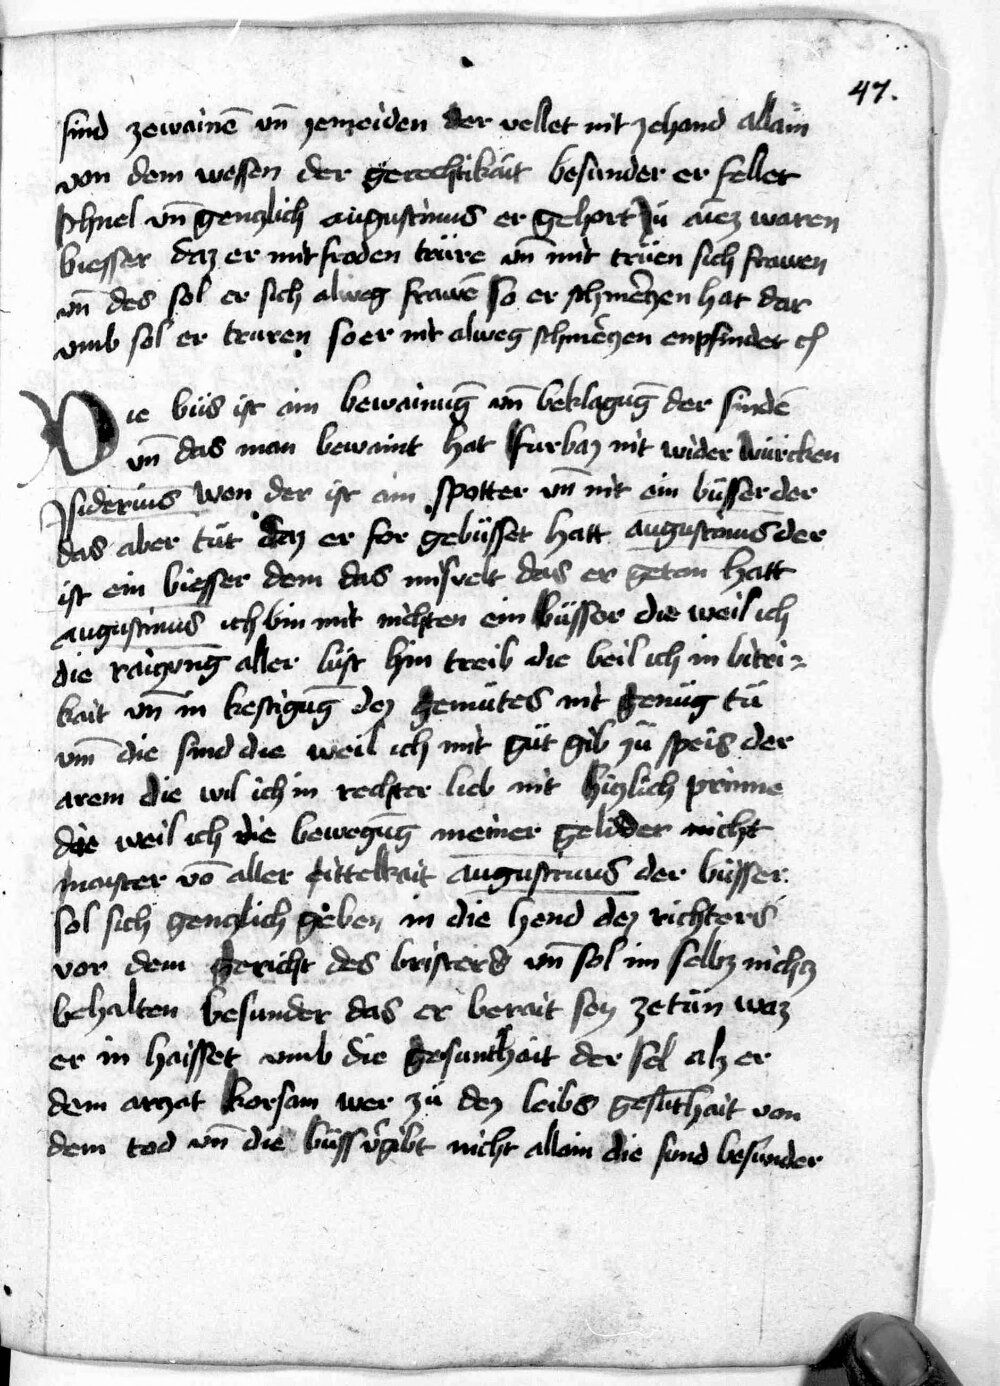 47.
sind zewainē vn̄ zemeiden der vellet nit zehand allain
von dem wessen der gerechtikait besunder er fellet
schnel vn̄ genczlich augustinus er gehort zu waren
biesser daz er mit froden trure vn̄ mit truen sich frawen
vn̄ des sol er sich alweg frawē so er schmerczen hat dar
vmb sol er truren so er nit alweg schmerczen enpfindet
Die büs ist ain bewainūg vn̄ beklagūg der sindē
vn̄ das man bewaint hat furbaz nit wider würcken
Jsiderius won der ist ain spotter vn̄ nit ein büsser der
das aber tüt daz er for gebüsset hatt augustinus der
ist ein biesser dem das misvelt das er geton hatt
augustinus ich bin mit nichten ein büsser die weil ich
die raiczung aller lust hin treib die beil ich in bitri-
kait vn̄ in kestigūg dez gemütes nit genüg tü
vm̄ die sind die weil ich mit güt gib zü speis der
arem die wil ich in rechter lieb nit hiczlich prinne
die weil ich die bewegūg meiner gelider nicht
maister vō aller eittelkait augustinus der büsser
sol sich genczlich geben in die hend dez richters
vor dem gericht des bristers vn̄ sol im selbz nichcz
behalten besunder das er berait sey zetün waz
er in haisset vmb die gesunthait der sel alz er
dem arczat korsam wer zü dez leibs gesūthait von
dem tod vn̄ die büss v̄gibt nicht allain die sund besunder